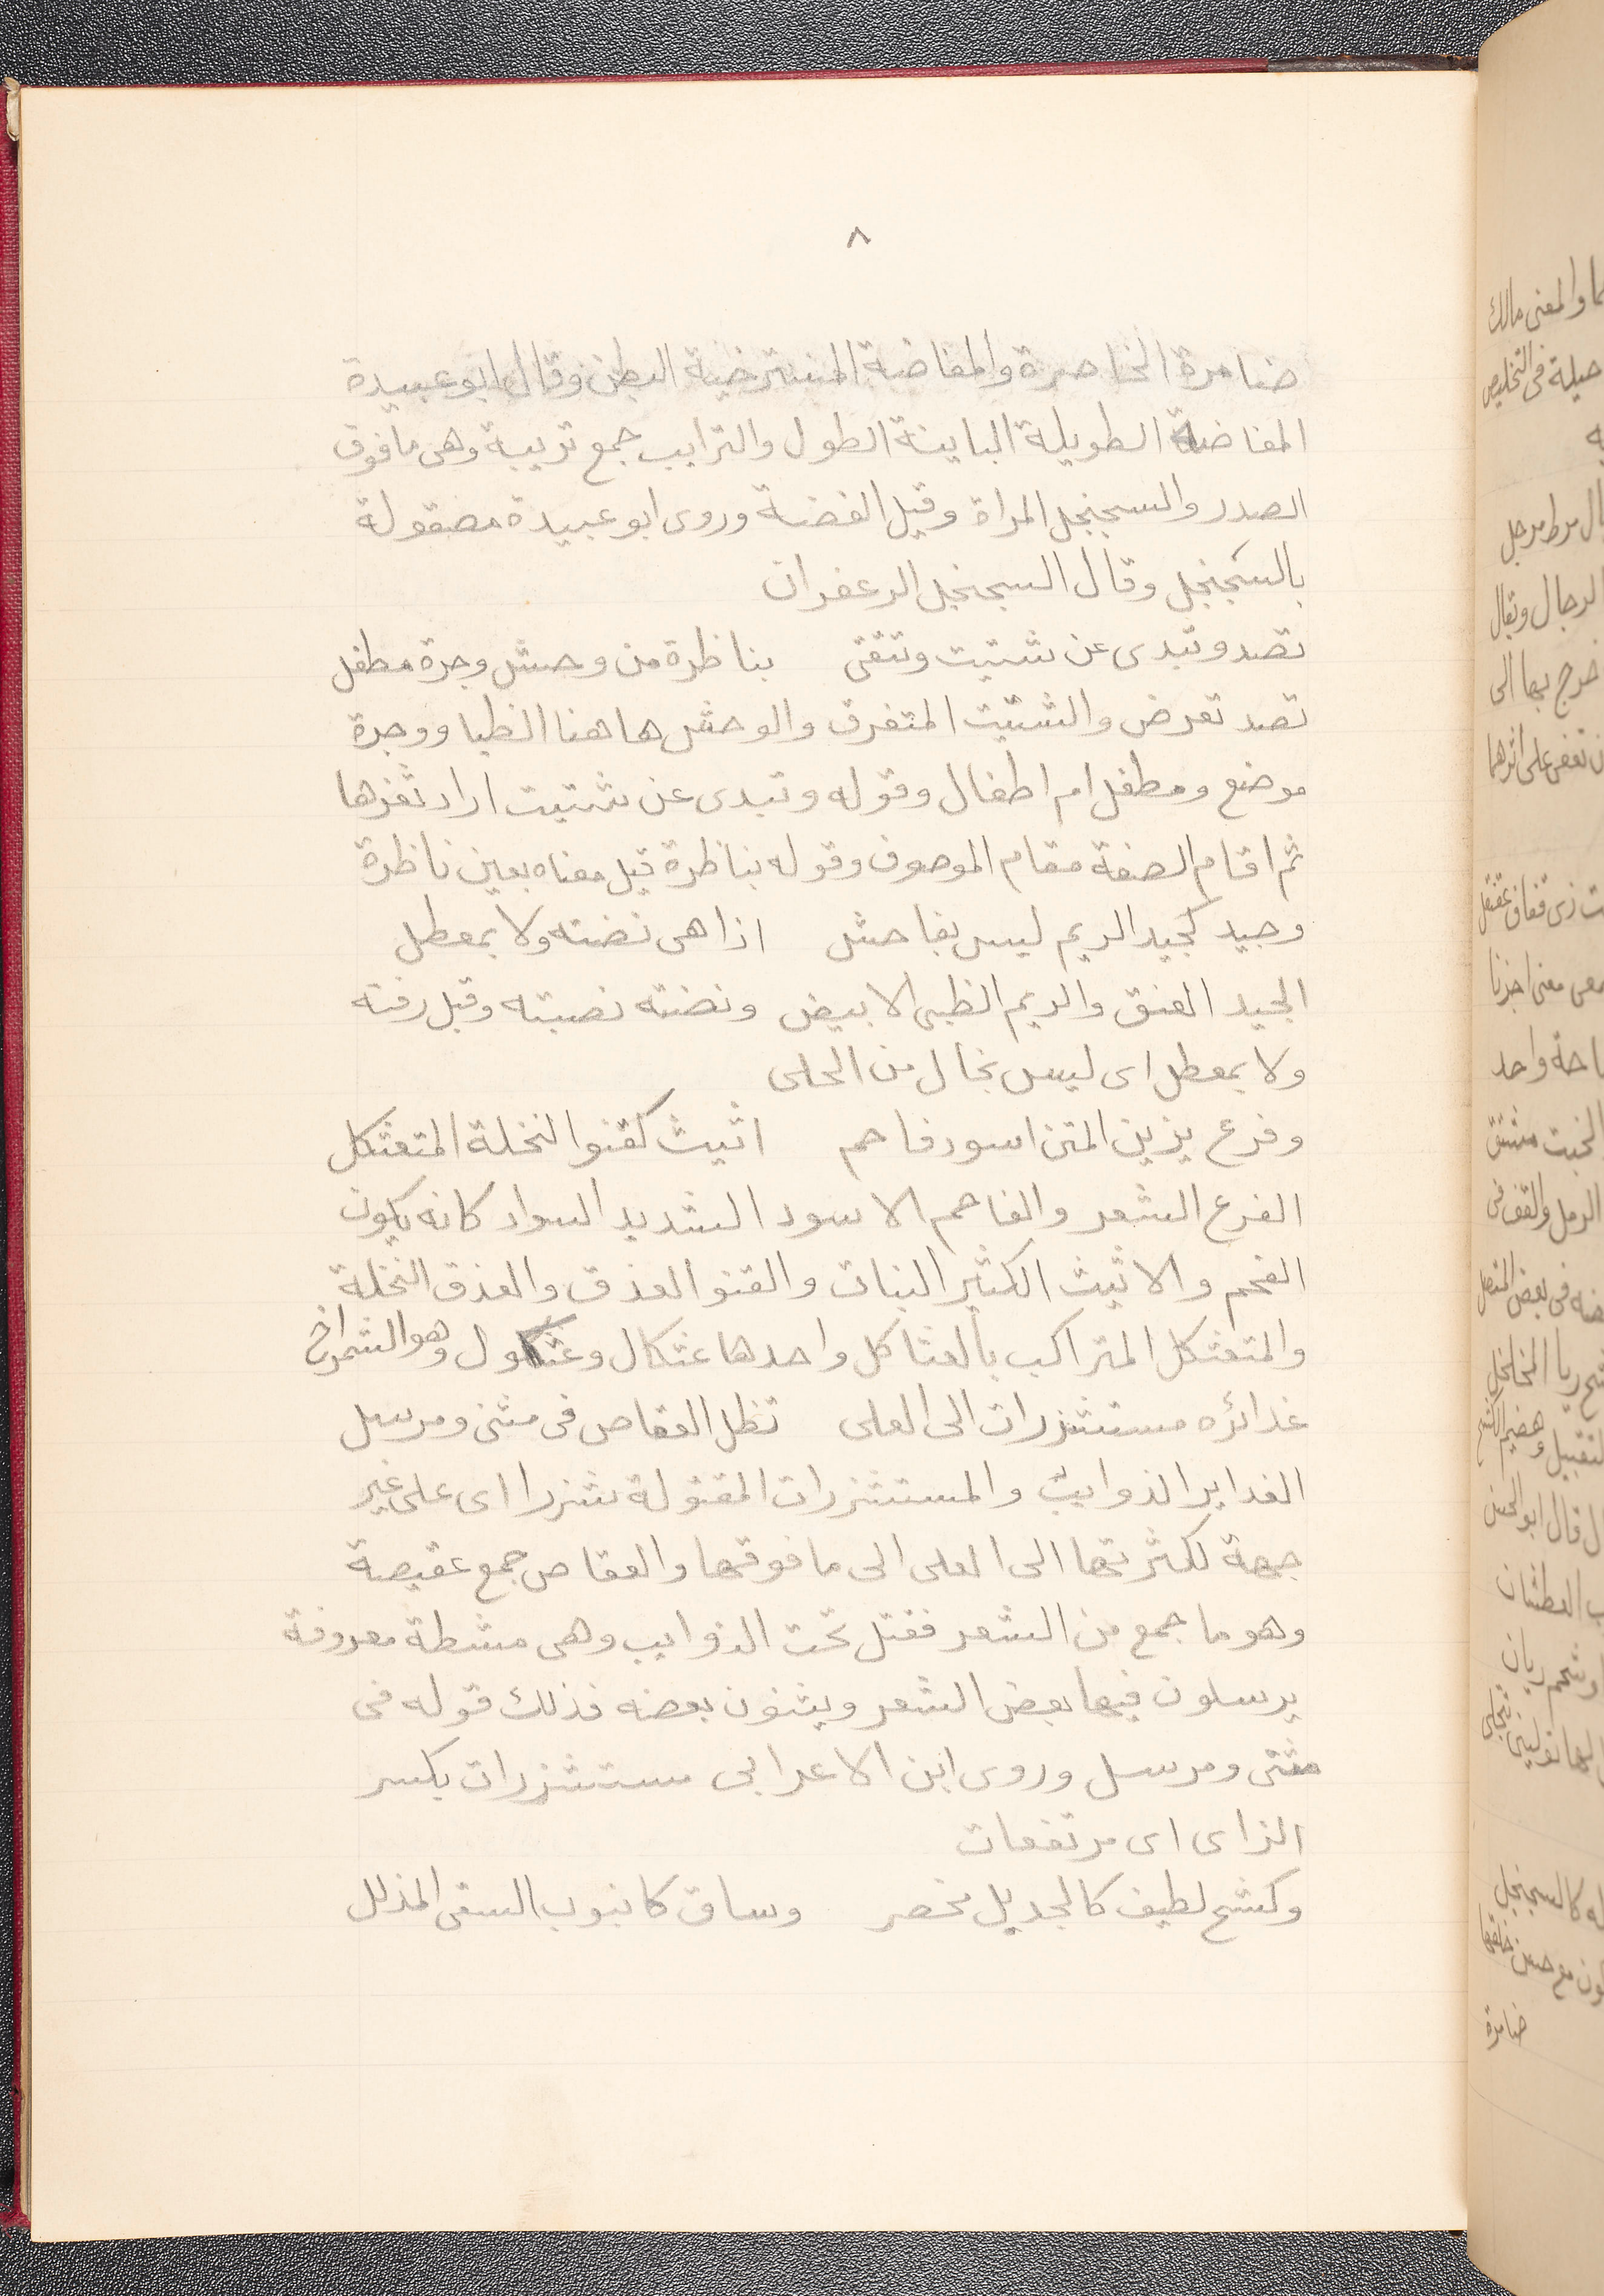 ٨
ضامرة الخاصرة والمفاضة المسترخية البطن وقال ابو عبيدة
المفاضة الطويلة الباينة الطول والترايب جمع تريبة وهى ما فوق
الصدر والسجنجل المراة وقيل الفضة وروى ابو عبيدة مصقولة
بالسجنجل وقال السجنجل الزعفران
تصد وتبدى عن شتيت وتتقى بناظرة من وحش وجرة مطفل
تصد تعرض والشتيت المتفرق والوحش هاهنا الظبا ووجرة
موضع ومطفل ام اطفال وقوله وتبدى عن شتيت اراد ثغرها
ثم اقام الصفة مقام الموصوف وقوله بناظرة قيل معناه بعين ناظرة
وجيد كجيد الريم ليس بفاحش اذا هى نضته ولا بمعطل
الجيد العنق والريم الظبى الابيض ونضته نصبته وقيل رفته
ولا بمعطل اى ليس بخال من الحلى
وفرع يزين المتن اسود فاحم اثيث كقنو النخلة المتعثكل
الفرع الشعر والفاحم الاسود الشديد السواد كانه بلون
الفحم والاثيث الكثير النبات والقنو العذق والعذق النخلة
والمتعثكل المتراكب بالعثاكل واحدها عثكال وعثكول وهو الشمراخ
غدائره مستشزرات الى العلى تظل العقاص فى مثنى ومرسل
الغداير الذوايب والمستشزرات المفتولة شزرا اى على غير
جهة لكثرتها الى العلى الى ما فوقها والعقاص جمع عقيصة
وهو ما جمع من الشعر ففتل تحت الذوايب وهى مشطة معروفة
يرسلون فيها بعض الشعر ويثنون بعضه فذلك قوله فى
مثنى ومرسل وروى ابن الاعرابى مستشزرات بكسر
الزاى اى مرتفعات
وكشح لطيف كالجديل مخصر وساق كانبوب السقى المذلل